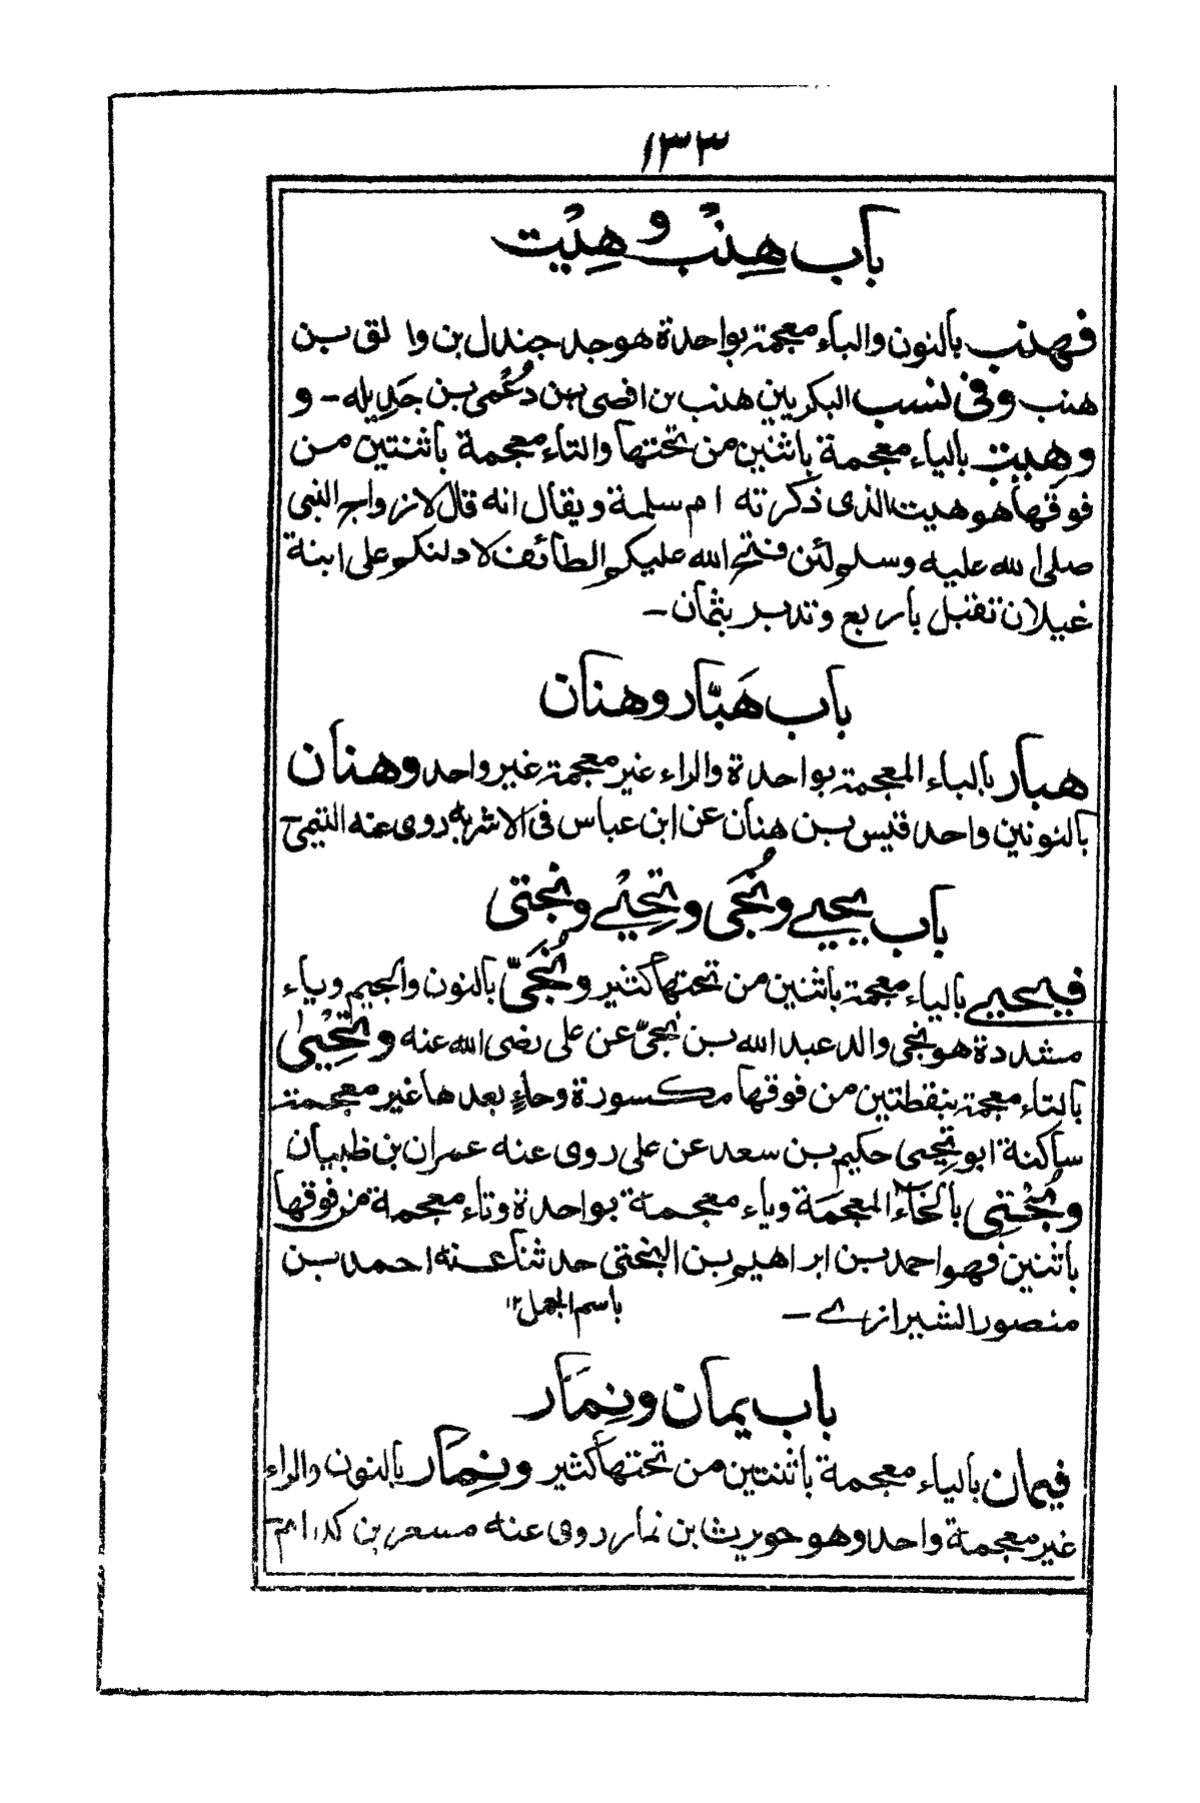 ١٣٣
باب هِنْب و هِيْت
فهنب بالنون والباء معجمة بواحدة هو جد جندل بن وا لق بن
هنب وفى نسب البكريين هنب بن افصى بن دُعْمى بن جَدِيله - و
وهِيت بالياء معجمة باثنين من تحتها والتاء معجمة باثنتين من
فوقها هو هيت الذى ذكرته ام سلمة ويقال انه قال لازواج النبى
صلى الله عليه وسلم لئن فتح الله عليكم الطائف لادلنكم على ابنة
غيلان تقبل باربع وتدبر بثمان -
باب هَبّار وهنان
هبار بالباء المعجمة بواحدة والراء غير معجمة غير واحد وهنان
بالنونين واحد قيس بن هنان عن ابن عباس فى الاشربه روى عنه التيمى
باب يحيے ونُجَى وتِحْيے ونجتى
فيحيے بالياء معجمة باثنين من تحتها كثير ونُجَىّ بالنون والجيم وياء
مشددة هو نجى والد عبد الله بن نجىّ عن على رضى الله عنه وتِحْيىٰ
بالتاء معجمة بنقطتين من فوقها مكسورة وحاءٍ بعدها غير معجمة
ساكنة ابو تِحيى حكيم بن سعد عن على روى عنه عمران بن ظبيان
وبُخْتِى بالخاء المعجمة وباء معجمة بواحدة وتاء معجمة من فوقها
باثنين فهو احمد بن ابراهيم بن البختى حدثنا عنه احمد بن
منصور الشيرازے -
باسم الجمل ١٢
باب يمان ونِمَار
فيمان بالياء معجمة باثنتين من تحتها كثير ونِمار بالنون والراء
غير معجمة واحد وهو حويرث بن نمار روى عنه مسعر بن كدام -